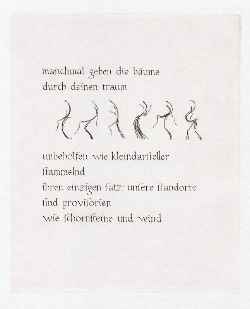 manchmal gehen die bäume
durch deinen traum
unbeholfen wie kleindarsteller
stammelnd
ihren einzigen satz: unsere standorte
sind provisorien
wie schornsteine und wind